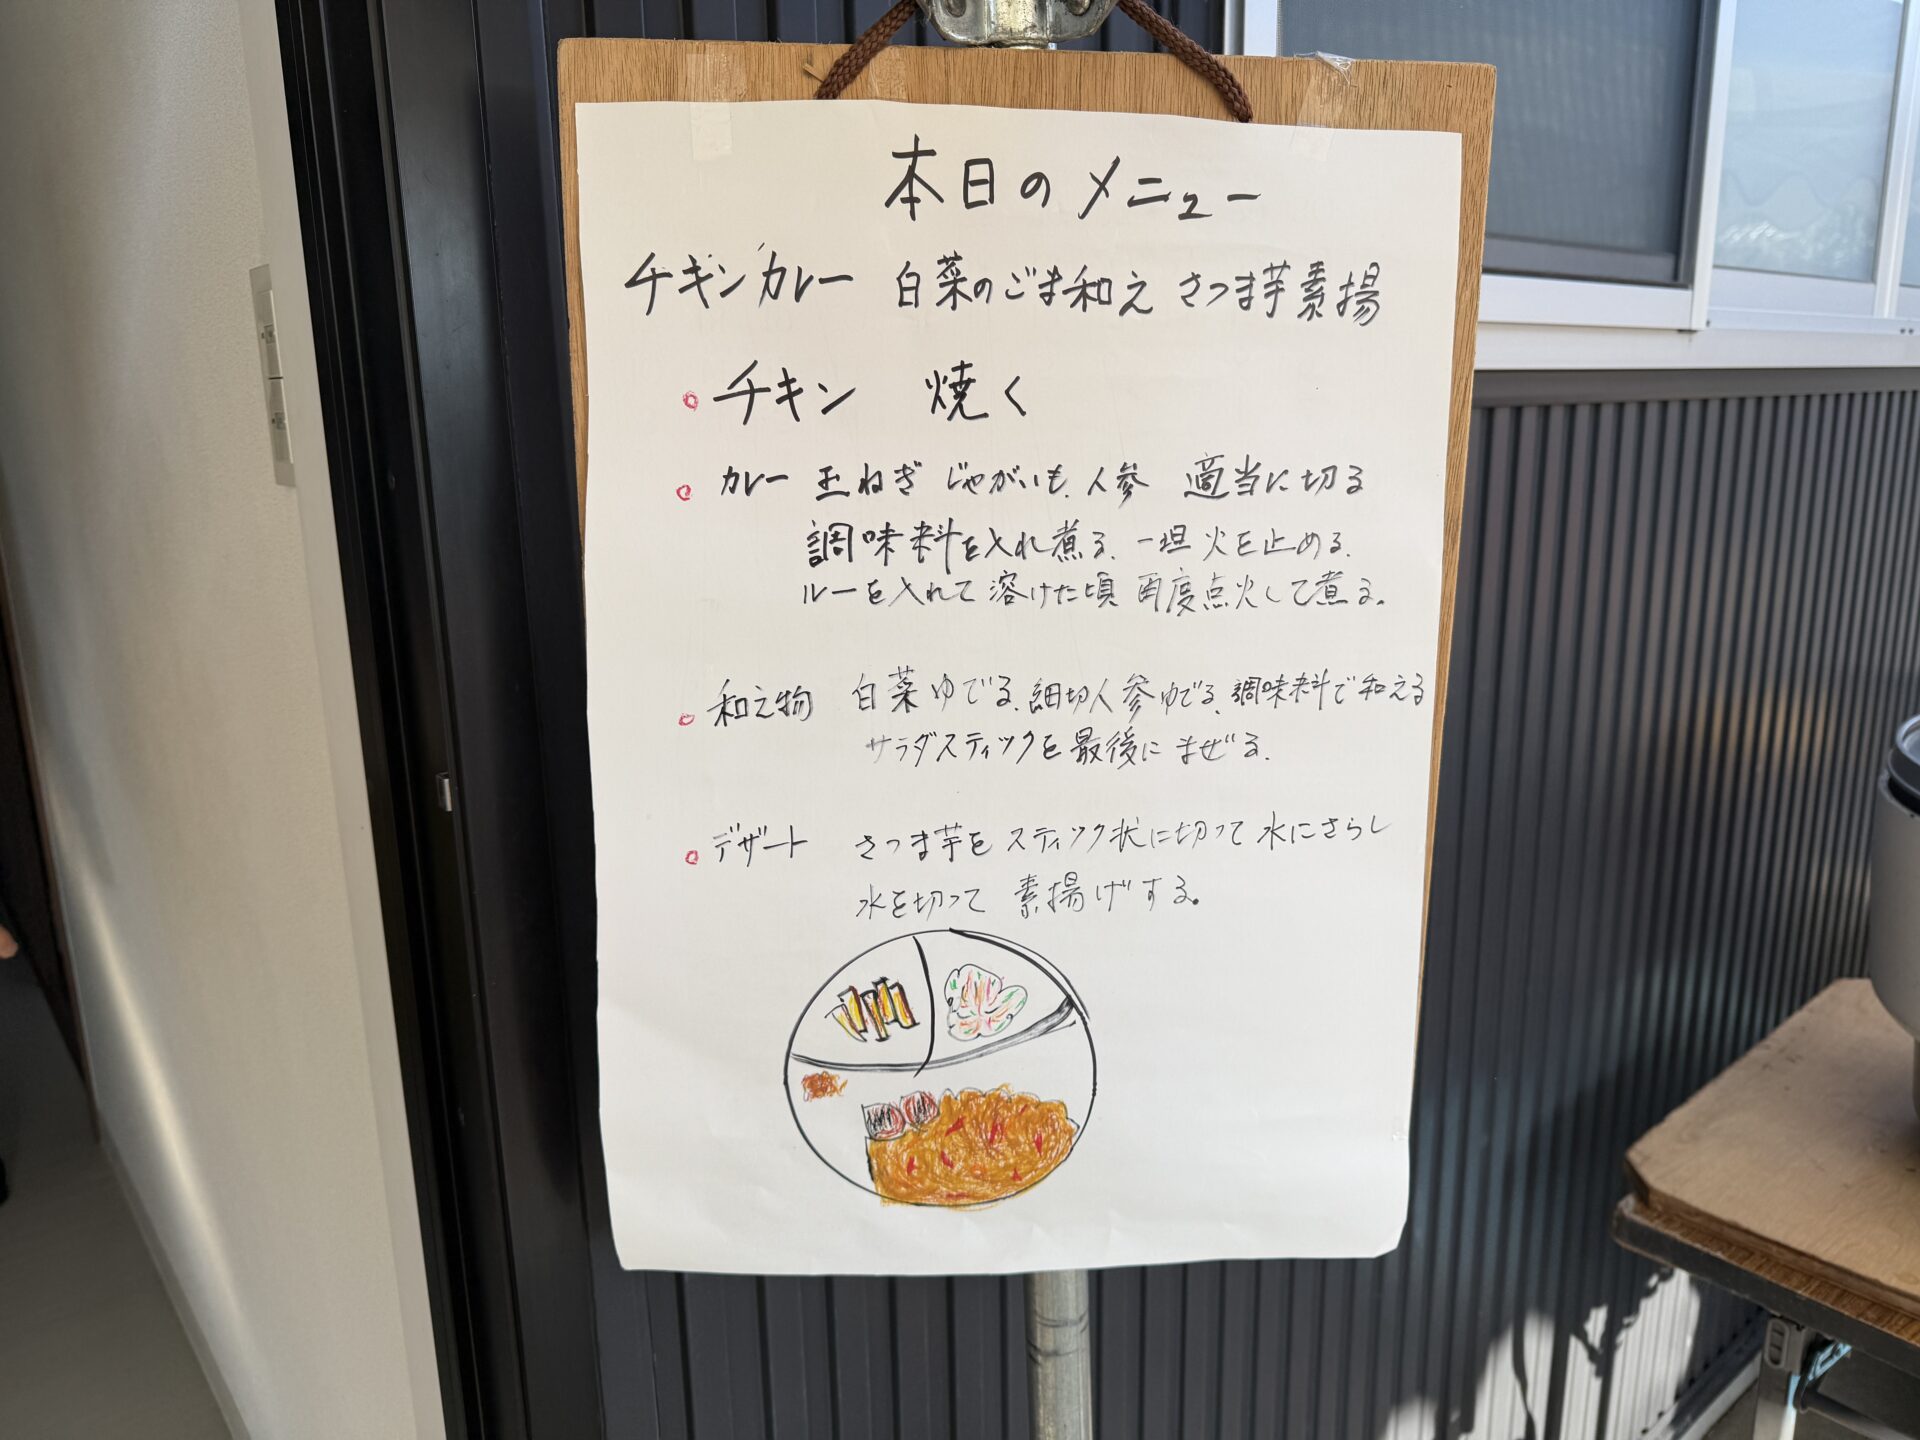 本日のメニュー
チキンカレー 白菜のごま和え さつま芋素揚
チキン 焼く
カレー 玉ねぎ じゃがいも、人参 適当に切る
調味料を入れ煮る、一担火を止める、
ルーを入れて溶けた頃 再度点火して煮る。
和え物 白菜ゆでる、細切人参ゆでる、調味料で和える
サラダスティックを最後にまぜる、
デザート さつま芋をスティック状に切って水にさらし
水を切って 素揚げする。